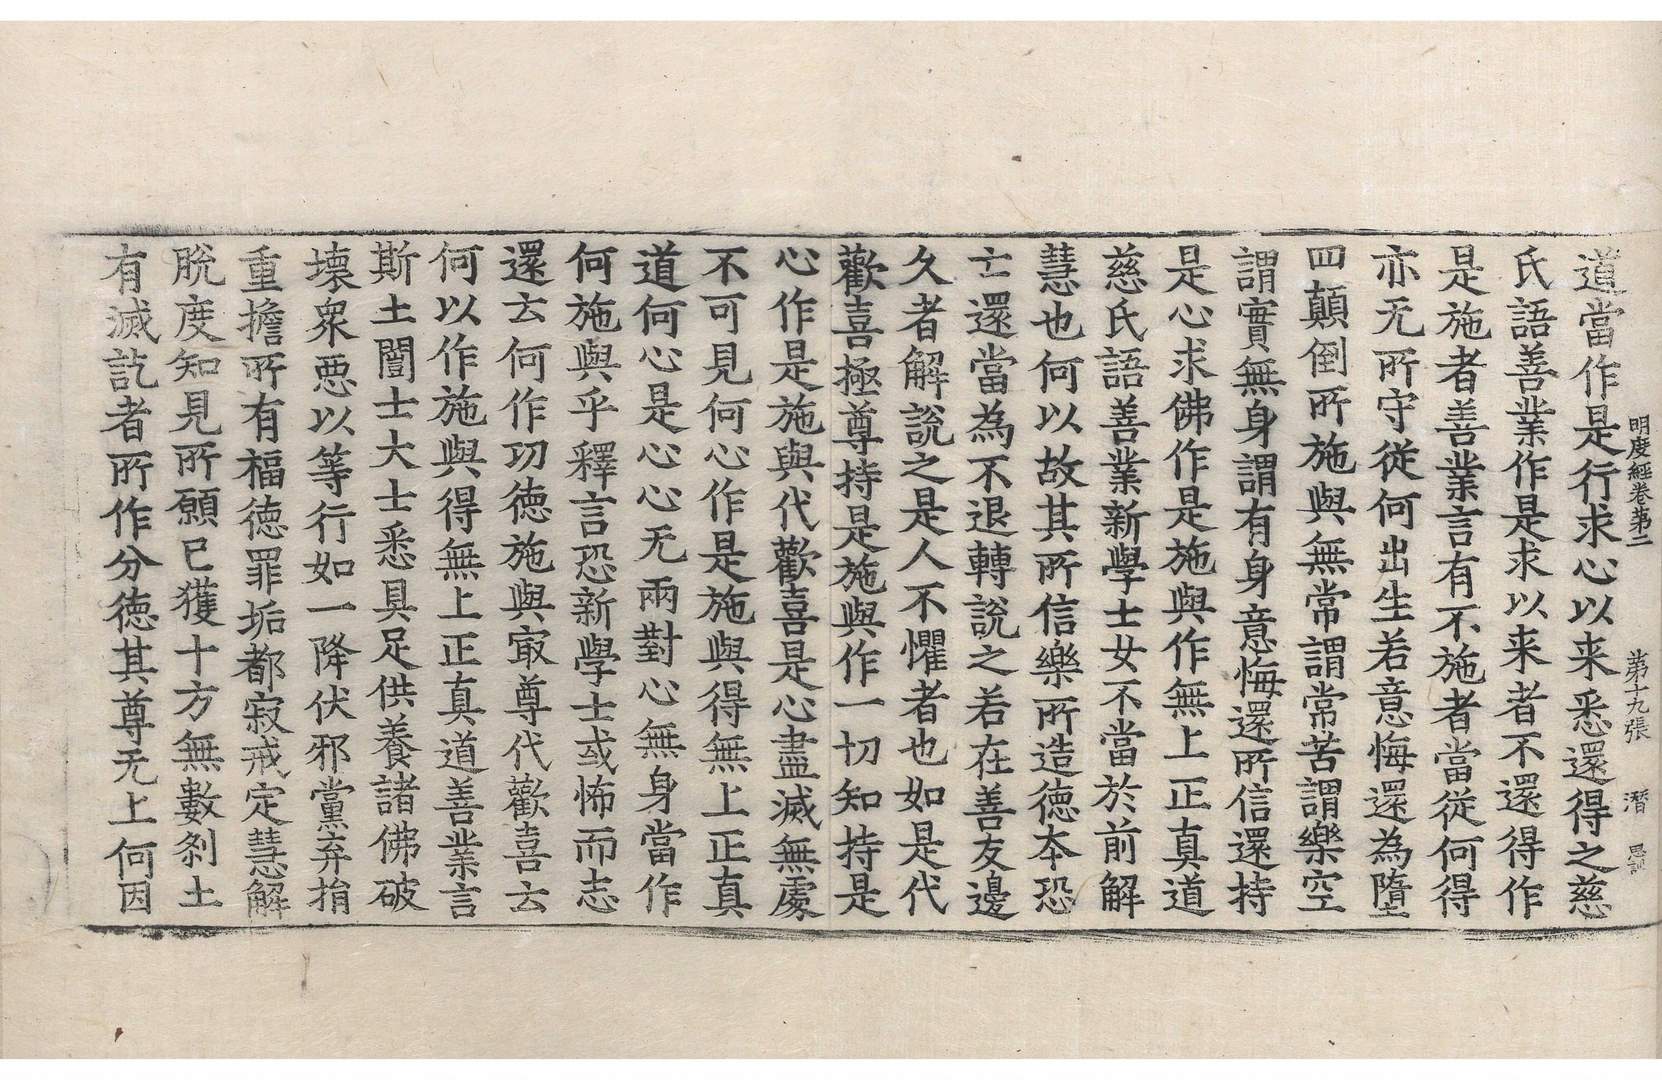 明度經卷第二 第十九張 潛
道當作是行求心以来悉還得之慈
氏語善業作是求以来者不還得作
是施者善業言有不施者當從何得
亦无所守從何出生若意悔還為墮
四顛倒所施與無常謂常苦謂樂空
謂實無身謂有身意悔還所信還持
是心求佛作是施與作無上正真道
慈氏語善業新學士女不當於前解
慧也何以故其所信樂所造德本恐
亡還當為不退轉說之若在善友邊
久者解說之是人不懼者也如是代
歡喜極尊持是施與作一切知持是
心作是施與代歡喜是心盡滅無處
不可見何心作是施與得無上正真
道何心是心心无兩對心無身當作
何施與乎釋言恐新學士或怖而志
還去何作功德施與㝡尊代歡喜去
何以作施與得無上正真道善業言
斯土闓士大士悉具足供養諸佛破
壞衆惡以等行如一降伏邪黨弃捐
重擔所有福德罪垢都寂戒定慧解
脫度知見所願已獲十方無數剎土
有滅訖者所作分德其尊无上何因